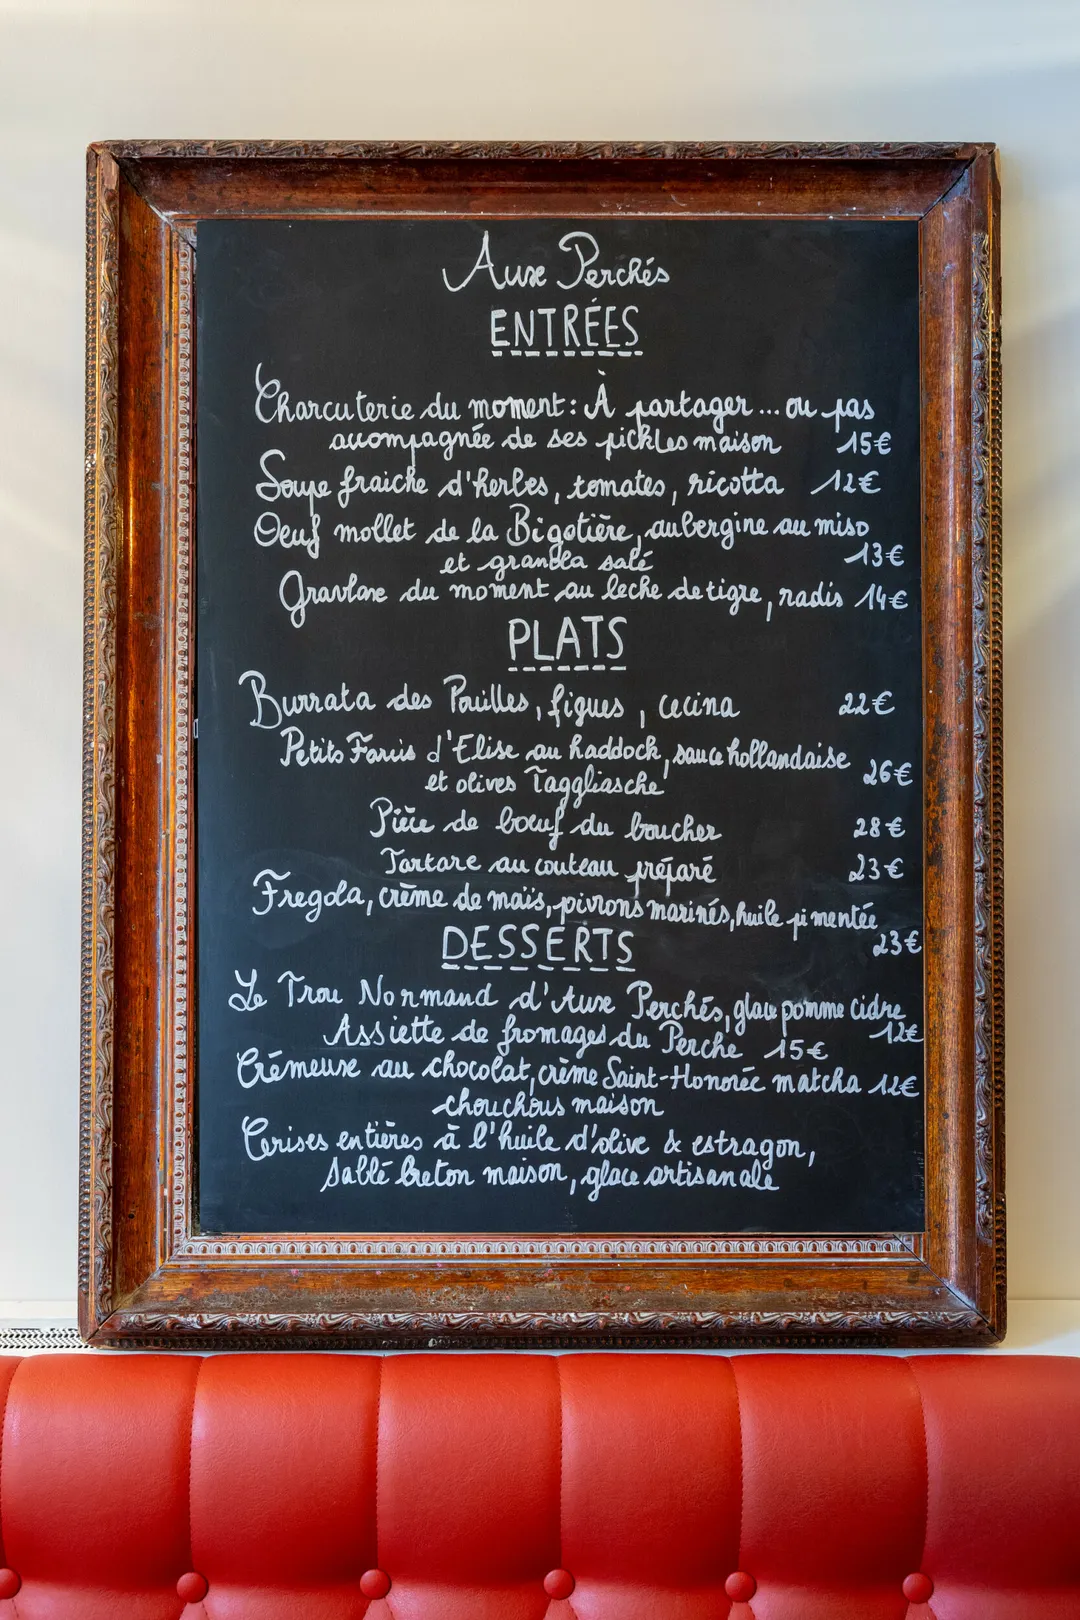 Aux Perchés
ENTRÉES
Charcuterie du moment : À partager... ou pas
accompagnée de ses pickles maison 15€
Soupe fraiche d'herbes, tomates, ricotta 12€
Oeuf mollet de la Bigotière, aubergine au miso
et granola salé 13€
Gravlax du moment au leche de tigre, radis 14€
PLATS
Burrata des Pouilles, figues, cecina 22€
Petits Farcis d'Elise au haddock, sauce hollandaise
et olives Taggliasche 26€
Pièce de boeuf du boucher 28€
Tartare au couteau préparé 23€
Fregola, crème de maïs, poivrons marinés, huile pimentée
23€
DESSERTS
Le Trou Normand d'Aux Perchés, glace pomme cidre
12€
Assiette de fromages du Perche 15€
Crémeux au chocolat, crème Saint-Honoré matcha 12€
chouchous maison
Cerises entières à l'huile d'olive & estragon,
sablé breton maison, glace artisanale